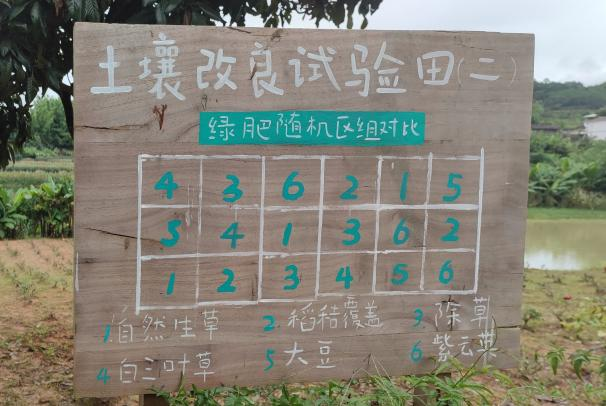 土壤改良试验田(二)
绿肥随机区组对比
4 3 6 2 1 5
5 4 1 3 6 2
1 2 3 4 5 6
1 自然生草 2 稻秸覆盖 3 除草
4 白三叶草 5 大豆 6 紫云英